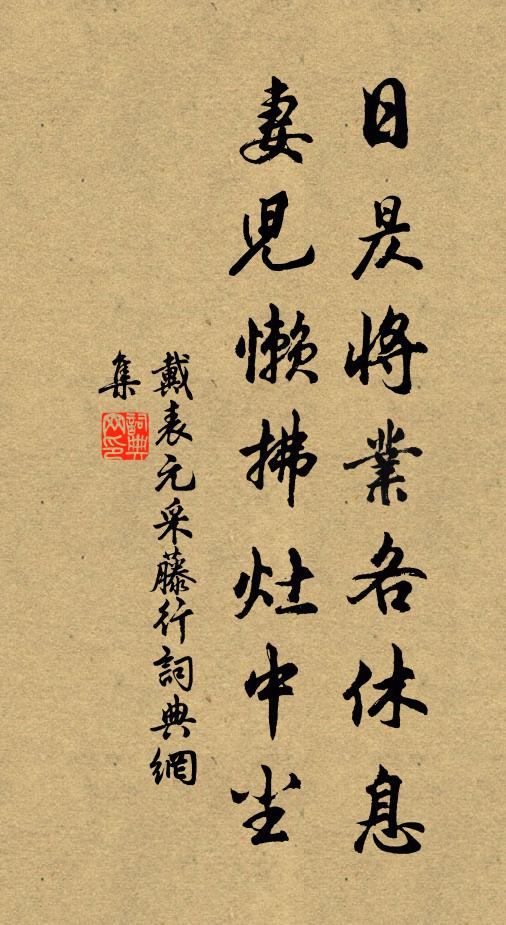 日昃将業各休息
妻児懶拂灶中尘
戴表元采藤行詞典網
集
詞典
网印